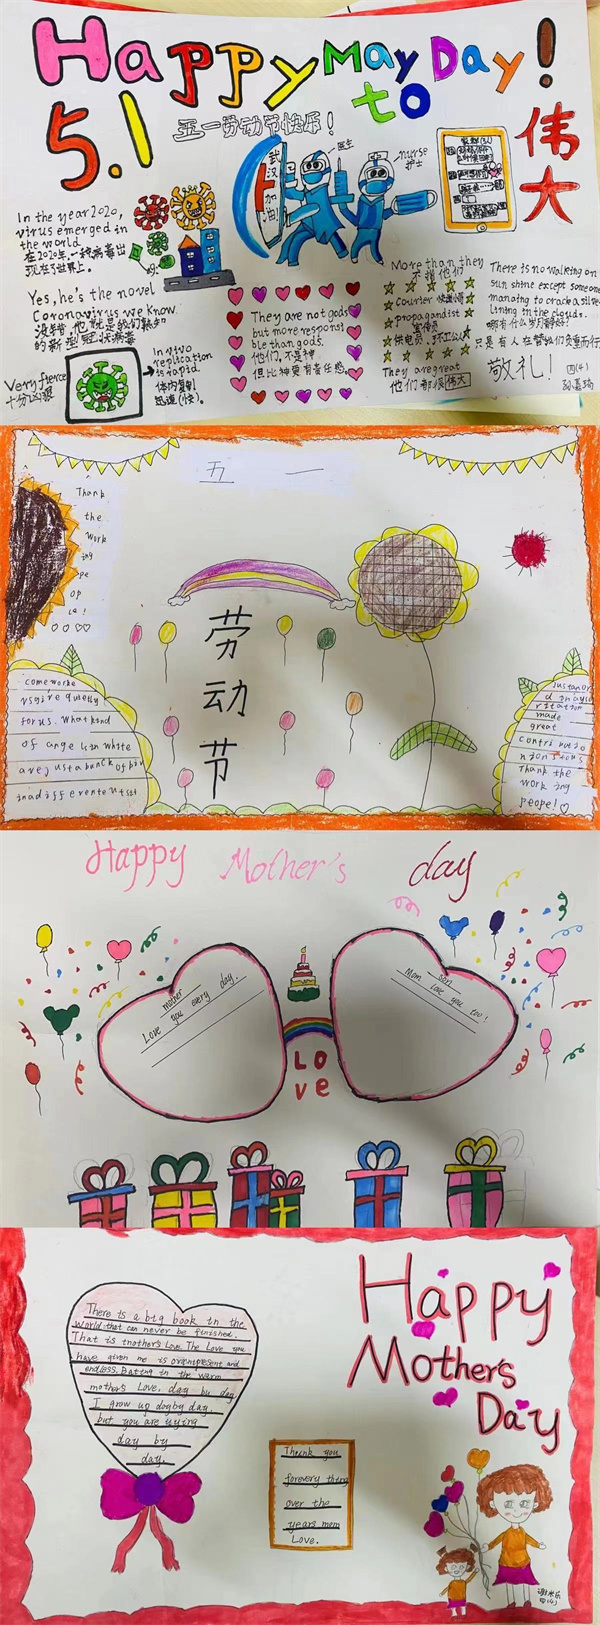 Happy May Day!
to
5.1
五一劳动节快乐!
伟
大
武
汉
加
油!
医生
nurse
护士
In the year 2020,
virus emerged in
the world
在2020年,一种病毒出
现在了世界上。
Yes, he's the novel
Coronavirus we know.
没错,他就是我们熟知
的新型冠状病毒
Very fierce
十分凶狠
In vivo
replication
is rapid
体内复制
迅速(快)。
They are not gods
but more responsi
ble than gods.
他们,不是神
但比神更有责任感
More than they
不指他们
Courier 快递小哥
propagandist
宣传员
They are great
他们都很伟大
There is no walking on
sun shine except someone
managing to crack a silve
lining in the clouds.
哪有什么岁月静好?
只是有人在替我们负重而行
敬礼!
四(4)
五一
Thank
the
work
ing
pe
op
le!
劳
动
节
come worke
rs give quietly
for us. What kond
of ange l in white
are just a banck of pin
in a different outsit
made
great
contri butio
Thank the
work ing
peope!
Happy Mother's day
mother
Love you every day.
Mom son
love you too!
LO
ve
There is a big book in the
world that can never be finished.
That is mothers Love. The Love you
have given me is omnipresent and
endless. Bating in the warm
mothers Love, day by day
I grow up day by day,
but you are trying
day by
day.
Thank you
forevery thing
over the
years mom
Love.
Happy
Mother's
Day
四(4)